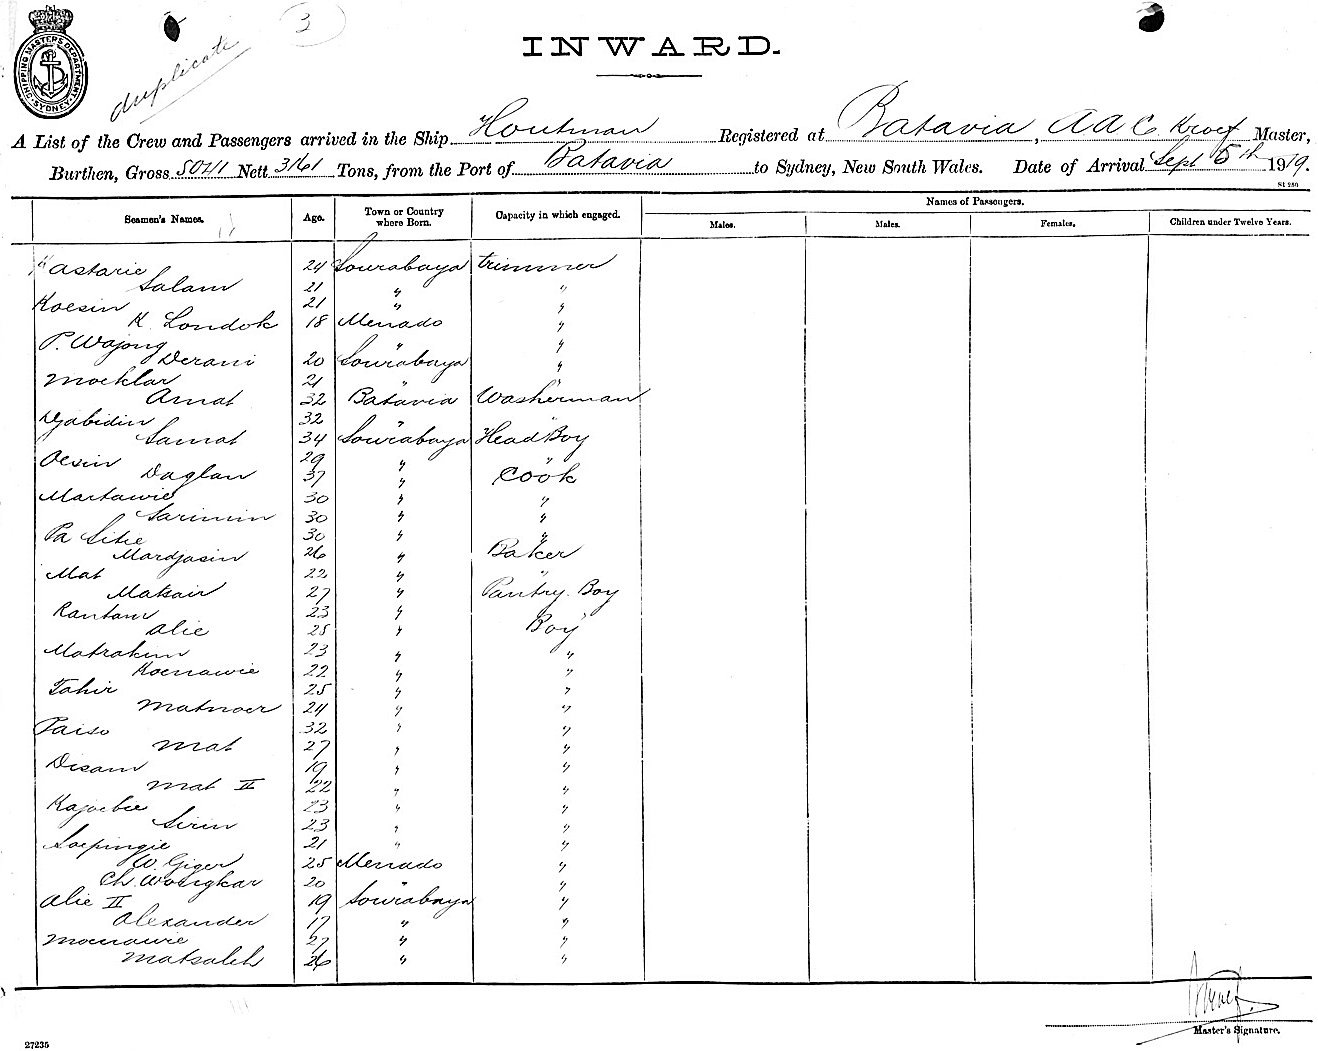 SHIPPING MASTERS DEPARTMENT SYDNEY
duplicate
3
INWARD.
A List of the Crew and Passengers arrived in the Ship Houtman Registered at Batavia, A A C Kroef Master,
Burthen, Gross 5041 Nett 3161 Tons, from the Port of Batavia to Sydney, New South Wales. Date of Arrival Sept 5th 1919.
St 280
Seamen's Names. Age. Town or Country where Born. Capacity in which engaged. Names of Passengers.
Males. Males. Females. Children under Twelve Years.
Astarie 24 Sourabaya trimmer
Salam 21 " "
Koesin 21 " "
K. Londok 18 Menado "
P. Wajong " "
Derani 20 Sourabaya "
Mochlar 21 " "
Amat 32 Batavia Washerman
Djabidin 32 " "
Samat 34 Sourabaya Head Boy
Oesin 29 " "
Daglan 37 " Cook
Martawie 30 " "
Sarimin 30 " "
Pa Sitie 30 " "
Mardjasin 26 " Baker
Mat 22 " "
Matsair 27 " Pantry Boy
Rantam 23 " "
Alie 25 " Boy
Matrakim 23 " "
Koenawie 22 " "
Tahir 25 " "
Matnoer 24 " "
Paiso 32 " "
Mat 27 " "
Desam 19 " "
Mat II 22 " "
Kajoebie 23 " "
Sirin 23 " "
Soepingie 21 " "
W. Giger 25 Menado "
Ch. Wongkar 20 " "
Alie II 19 Sourabaya "
Alexander 17 " "
Moenawie 27 " "
Matsaleh 26 " "
Kroef.
Master's Signature.
27235